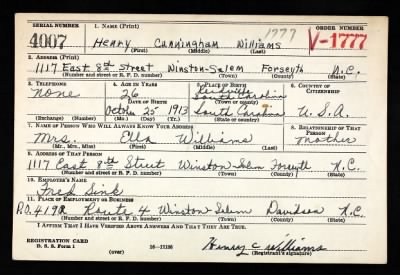 SERIAL NUMBER 1. NAME (Print) 1777 ORDER NUMBER
4007 Henry Cunningham Williams V-1777
(First) (Middle) (Last)
2. ADDRESS (Print)
1117 East 8th Street Winston-Salem Forsyth N.C.
(Number and street or R. F. D. number) (Town) (County) (State)
3. TELEPHONE 4. AGE IN YEARS 5. PLACE OF BIRTH 6. COUNTRY OF CITIZENSHIP
none 26 South Carolina
DATE OF BIRTH (Town or county)
October 25 1913 South Carolina U.S.A.
(Exchange) (Number) (Mo.) (Day) (Yr.) (State or country)
7. NAME OF PERSON WHO WILL ALWAYS KNOW YOUR ADDRESS 8. RELATIONSHIP OF THAT PERSON
Mrs. Ella Williams mother
(Mr., Mrs., Miss) (First) (Middle) (Last)
9. ADDRESS OF THAT PERSON
1117 East 8th Street Winston Salem Forsyth N.C.
(Number and street or R. F. D. number) (Town) (County) (State)
10. EMPLOYER'S NAME
Fred Sink
11. PLACE OF EMPLOYMENT OR BUSINESS
Route 4 Winston Salem Davidson N.C.
(Number and street or R. F. D. number) (Town) (County) (State)
I AFFIRM THAT I HAVE VERIFIED ABOVE ANSWERS AND THAT THEY ARE TRUE.
REGISTRATION CARD
D. S. S. Form 1 (over) 16-17105 Henry C Williams
(Registrant's signature)